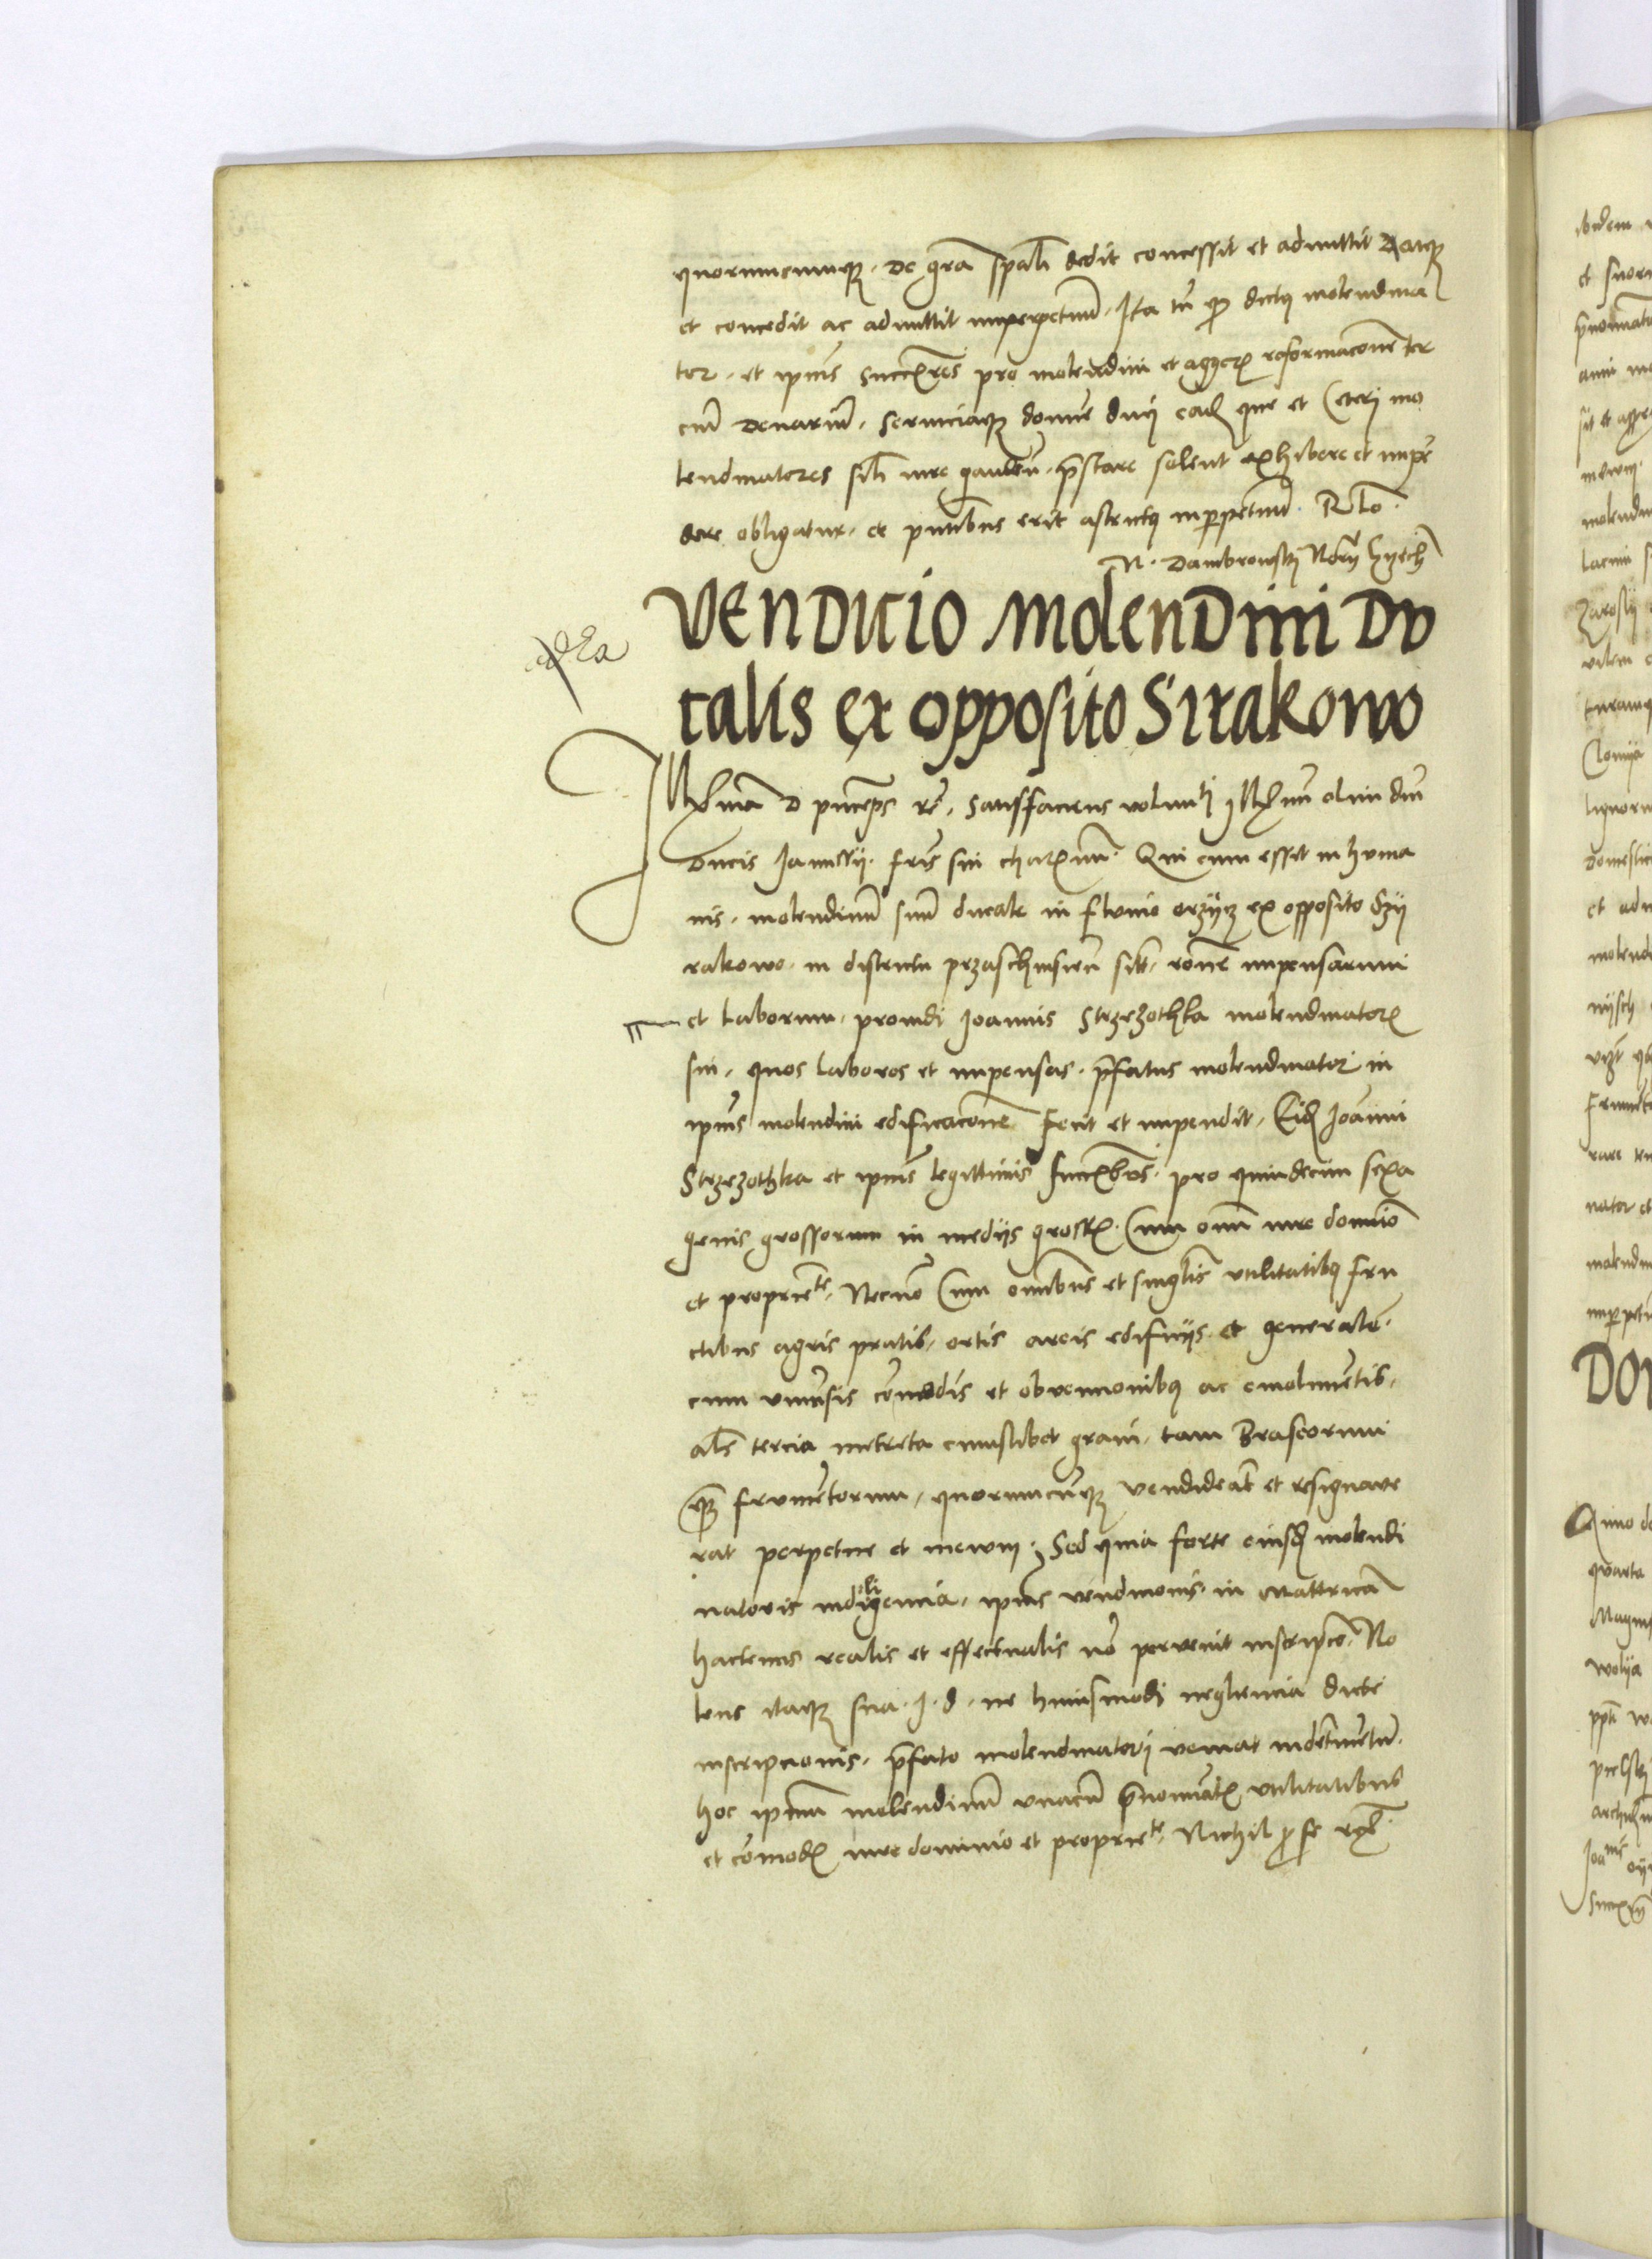 quorumcumqȝ. De gra spali dedit concessit et admittit Datqȝ
et concedit ac admittit inperpetuum. Ita tn̄ qȝ dictus molendina
tor. et ipius succ̄res pro molendini et aggeris reformacone ter
cium denarium. Seruiciaqȝ domui d. que et Ceteri mo
lendinatores sili iure gauden. pstare solent exhibere et inpen
dere obligatur. et pntibus erit astrictus inperpetuum. Rlo.
N. Dambrowskj
Vendicio Molendini Du
calis ex opposito Sirakowo
Illma D princeps rc. satisffaciens volunti Illmi olim dni
Ducis Janussij. fris sui charmi. Qui cum esset in huma
nis. molendinum suum ducale in fluuio orzijcz ex opposito Szij
rakowo. in districtu przaschnisien sit. rone inpensarum
et laborum. prouidi Joannis Strzezothka molendinatoris
sui. quos labores et inpensas. pfatus molendinator in
ipius molendini edificacone fecit et inpendit. Eid Joanni
Strzezothka et ipius legittimis succbus. pro quindecim sexa
genis grossorum in medijs gross. Cum omni iure dominio
et propriete. Necno Cum omibus et singlis vtilitatibus fru
ctibus agris pratis. ortis areis edificijs et generale.
cum vniuersis comodis et obuencionibus ac emolumentis.
als tercia metreta cuiuslibet grani. tam Braseorum
qȝ frumentorum. quorumcumqȝ vendiderat et resignaue
rat perpetue et ineuum. Sed quia forte eiusd molendi
natoris indiligencia. ipius vendicionis in Matricam
hactenus realis et effectualis no peruenit inscripcio. No
lens itaqȝ sua. J. d. ne huiusmodi neglencia dicte
inscripcionis. pfato molendinatori veniat indetrimentum.
hoc ipsum molendinum vnacum pnominatis vtilitatibus
et comodis iure dominio et propriete. Nichil pro se